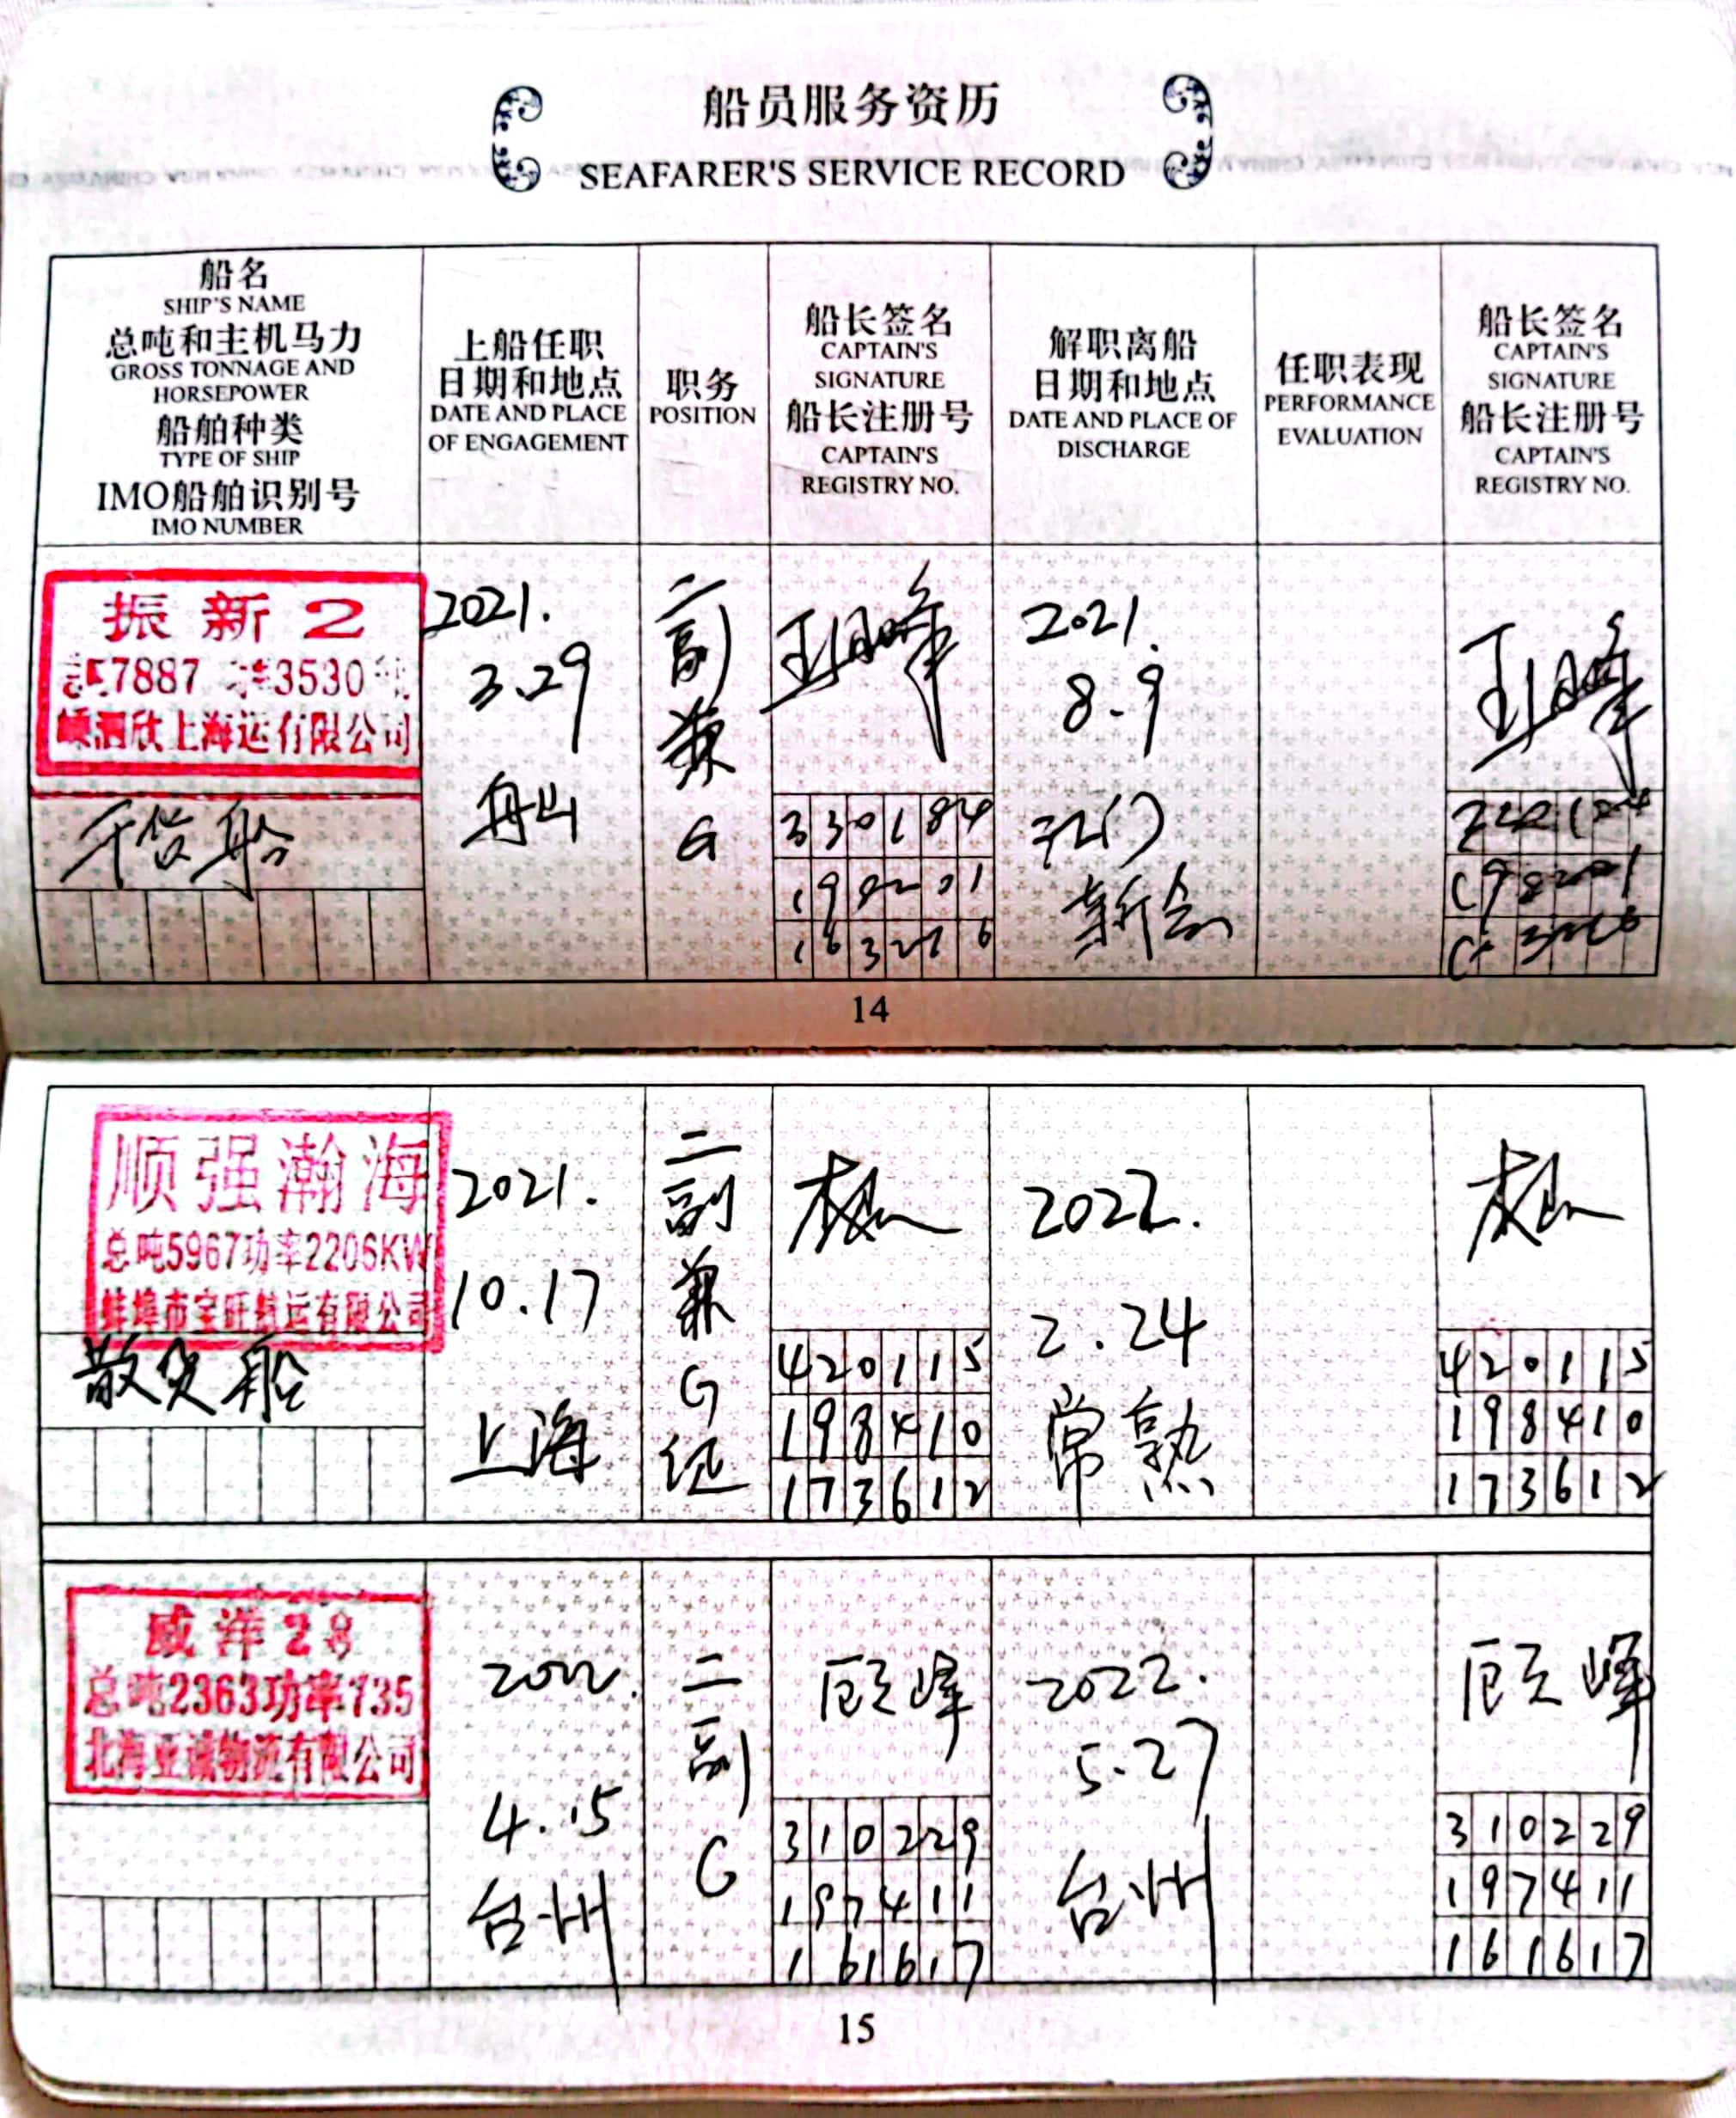 船员服务资历
SEAFARER'S SERVICE RECORD
船名
SHIP'S NAME
总吨和主机马力
GROSS TONNAGE AND
HORSEPOWER
船舶种类
TYPE OF SHIP
IMO船舶识别号
IMO NUMBER
上船任职
日期和地点
DATE AND PLACE
OF ENGAGEMENT
职务
POSITION
船长签名
CAPTAIN'S
SIGNATURE
船长注册号
CAPTAIN'S
REGISTRY NO.
解职离船
日期和地点
DATE AND PLACE OF
DISCHARGE
任职表现
PERFORMANCE
EVALUATION
船长签名
CAPTAIN'S
SIGNATURE
船长注册号
CAPTAIN'S
REGISTRY NO.
振新2
7887 3530
嵊泗欣上海运有限公司
干货船
2021.
3.29
舟山
二
副
兼
G
330184
198201
2021.
8.9
江门
新会
14
顺强瀚海
总吨5967功率2206KW
蚌埠市宝旺航运有限公司
散货船
2021.
10.17
上海
二
副
兼
G
证
420115
198410
173612
2022.
2.24
常熟
420115
198410
173612
威洋28
总吨2363功率735
北海亚诚物流有限公司
2022.
4.15
台州
二
副
G
顾峰
310229
197411
161617
2022.
5.27
台州
顾峰
310229
197411
161617
15